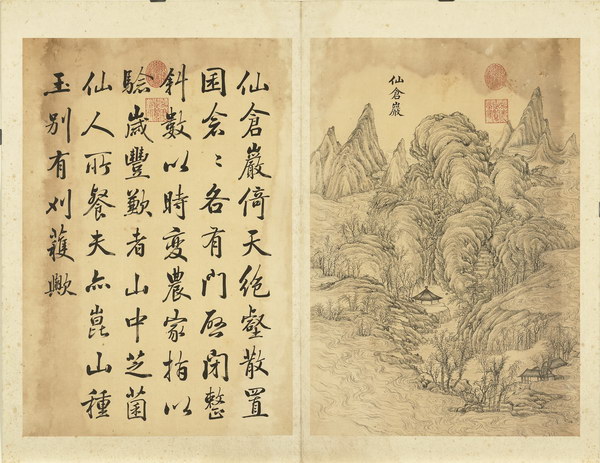 仙倉巖
仙倉巖倚天絶壑散置
囷仺〻各有門啓閉整
斜數以時變農家指以
驗歲豐歉者山中芝菌
仙人所餐夫亦崑山種
玉別有刈穫歟